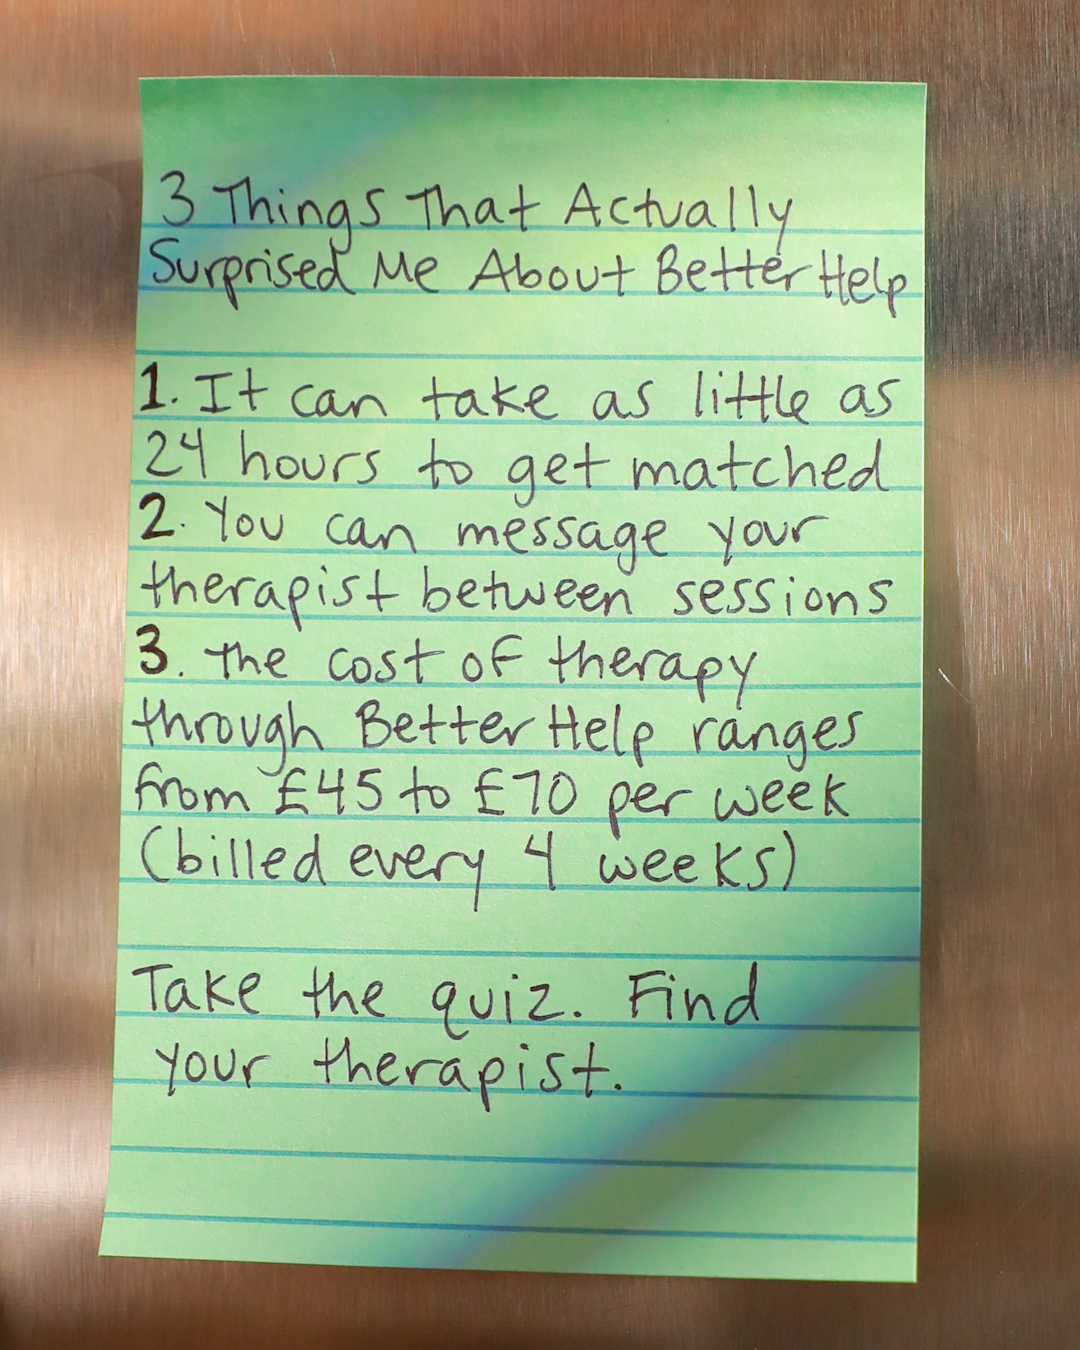 3 Things That Actually
Surprised Me About BetterHelp
1. It can take as little as
24 hours to get matched
2. You can message your
therapist between sessions
3. The cost of therapy
through BetterHelp ranges
from £45 to £70 per week
(billed every 4 weeks)
Take the quiz. Find
your therapist.